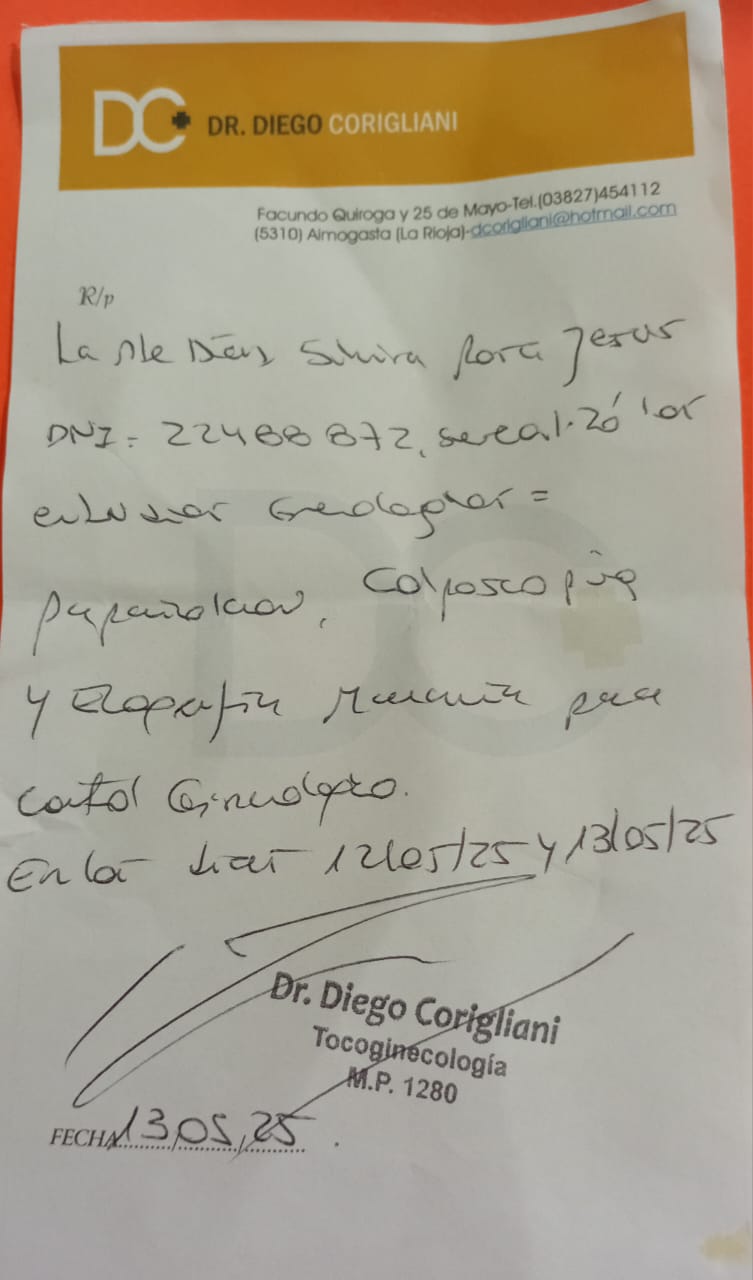 DC+ DR. DIEGO CORIGLIANI
Facundo Quiroga y 25 de Mayo-Tel.(03827)454112
(5310) Aimogasta (La Rioja)-dcorigliani@hotmail.com
R/p
La Silvina Rosa Jesus
DNI: 22488872, se realizó los
estudios Ginecologicos =
papanicolaou, Colposcopia
y Ecografia Mamaria para
control Ginecologico.
En los dias 12/05/25 y 13/05/25
Dr. Diego Corigliani
Tocoginecología
M.P. 1280
FECHA 13,05,25.